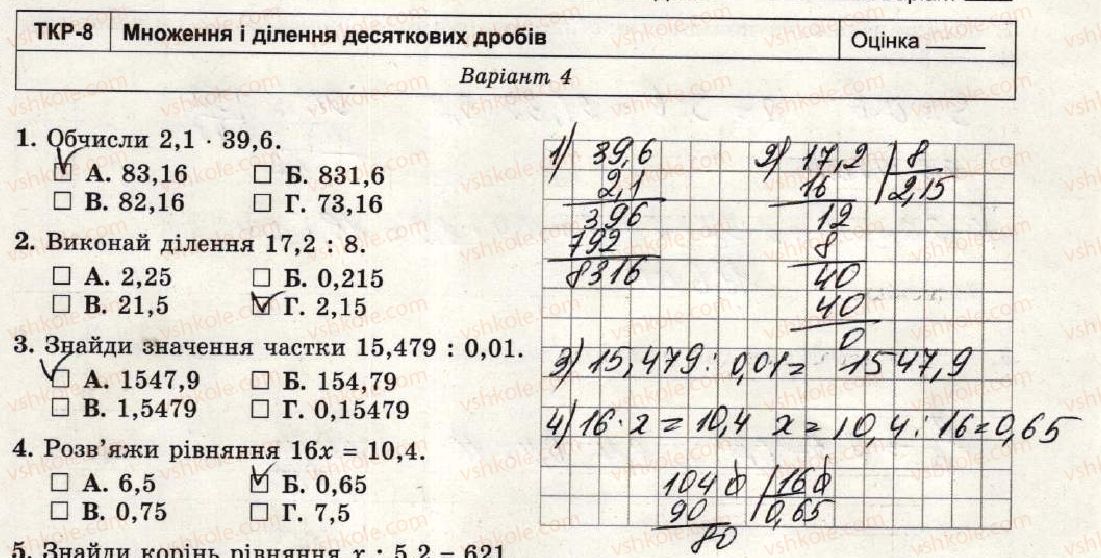 ТКР-8 Множення і ділення десяткових дробів Оцінка
Варіант 4
1. Обчисли 2,1 · 39,6.
А. 83,16 Б. 831,6
В. 82,16 Г. 73,16
2. Виконай ділення 17,2 : 8.
А. 2,25 Б. 0,215
В. 21,5 Г. 2,15
3. Знайди значення частки 15,479 : 0,01.
А. 1547,9 Б. 154,79
В. 1,5479 Г. 0,15479
4. Розв'яжи рівняння 16x = 10,4.
А. 6,5 Б. 0,65
В. 0,75 Г. 7,5
5. Знайди корінь рівняння x : 5,2 = 621
1) 39,6
2,1
396
792
8316
2) 17,2 8
16 2,15
12
8
40
40
0
3) 15,479 : 0,01 = 1547,9
4) 16 · x = 10,4 x = 10,4 : 16 = 0,65
1040 160
90 0,65
80